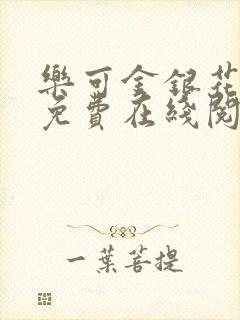 樂可金銀花
免費在綫閱
一葉菩提